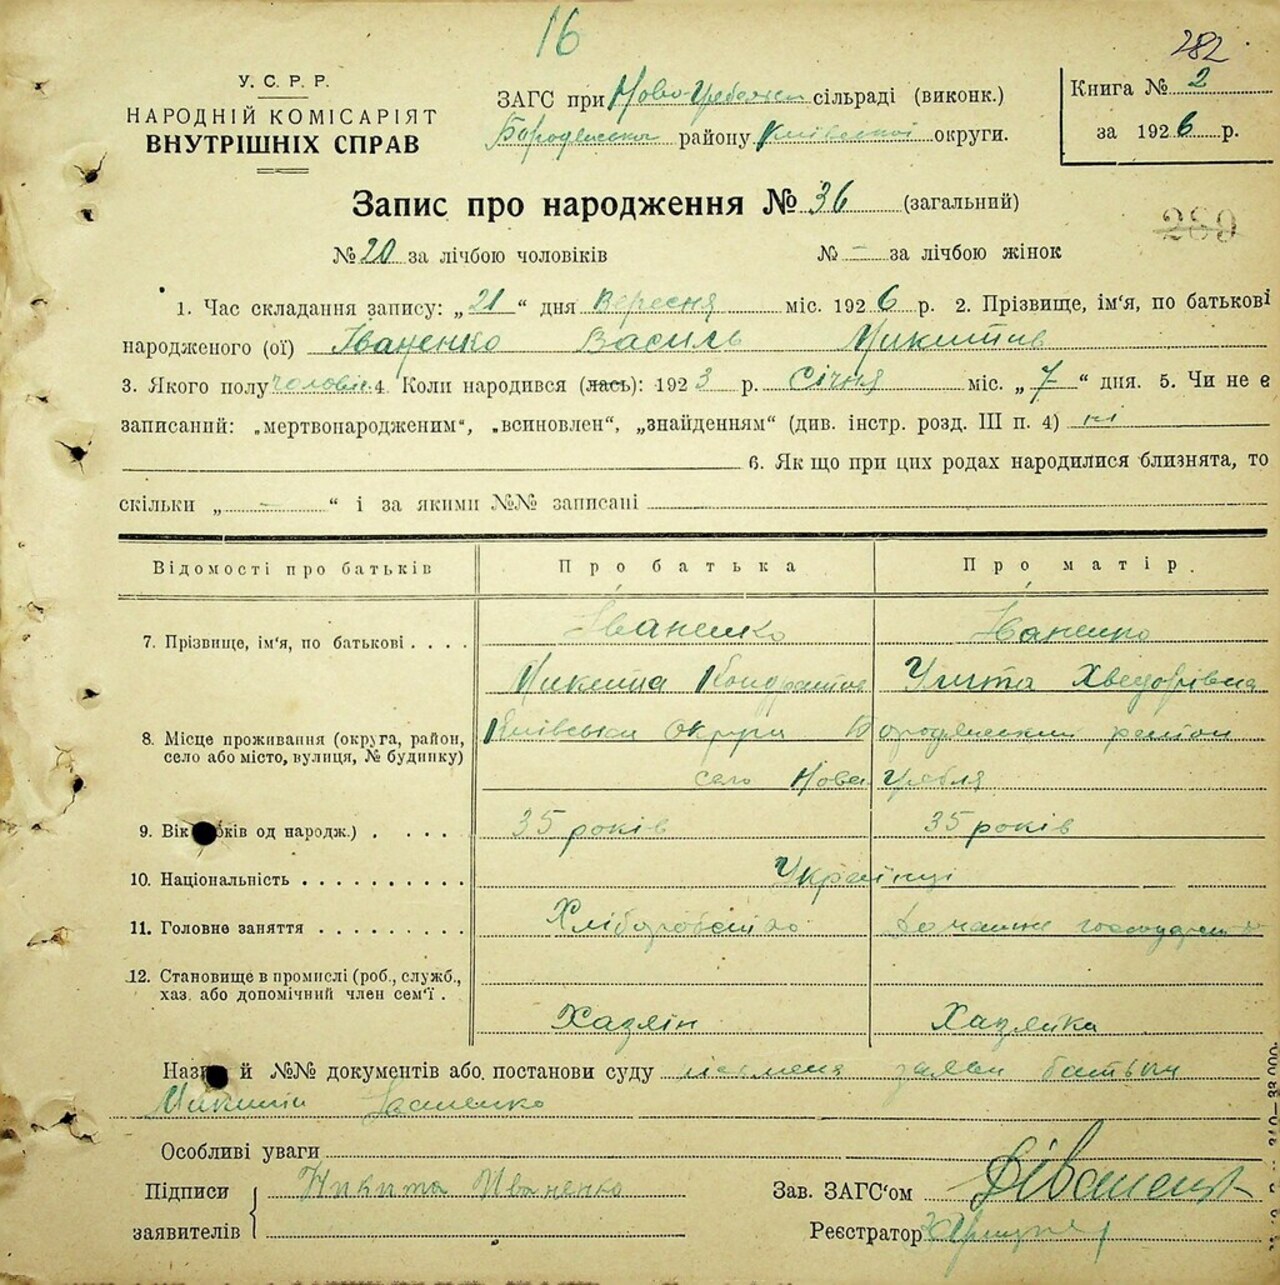 16
282
У. С. Р. Р.
НАРОДНІЙ КОМІСАРІЯТ
ВНУТРІШНІХ СПРАВ
ЗАГС при Ново-Гребельск сільраді (виконк.)
Бородянськ району Київської округи.
Книга № 2
за 1926 р.
Запис про народження № 36 (загальний)
289
№ 20 за лічбою чоловіків № – за лічбою жінок
1. Час складання запису: „21“ дня Вересня міс. 1926 р. 2. Прізвище, ім'я, по батькові
народженого (ої) Іваненко Василь Микитів
3. Якого полу чоловіч. 4. Коли народився (лась): 1923 р. Січня міс. „7“ дня. 5. Чи не є
записаний: „мертвонародженим“, „всиновлен“, „знайденням“ (див. інстр. розд. III п. 4) ні
6. Як що при цих родах народилися близнята, то
скільки „ – “ і за якими №№ записані
Відомості про батьків Про батька Про матір.
7. Прізвище, ім'я, по батькові . . . . Іваненко Іваненко
Микита Кондратів Улита Хведорівна
8. Місце проживання (округа, район, Київська округа Бородянський район
село або місто, вулиця, № будинку) село Нова Гребля
9. Вік оків од народж.) . . . . 35 років 35 років
10. Національність . . . . . . . . . . Українці
11. Головне заняття . . . . . . . . . Хліборобство Домашнє господарств
12. Становище в промислі (роб., служб.,
хаз. або допомічний член сем'ї . Хазяїн Хазяйка
Наз й №№ документів або постанови суду заява батька
Микити Іваненко
Особливі уваги
Підписи Никита Иваненко Зав. ЗАГС'ом
заявителів Реєстратор